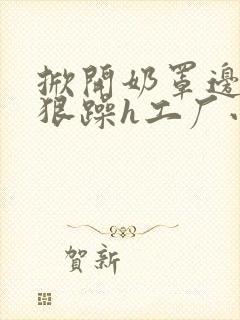 掀開奶罩邊
狠躁h工厂
賀新